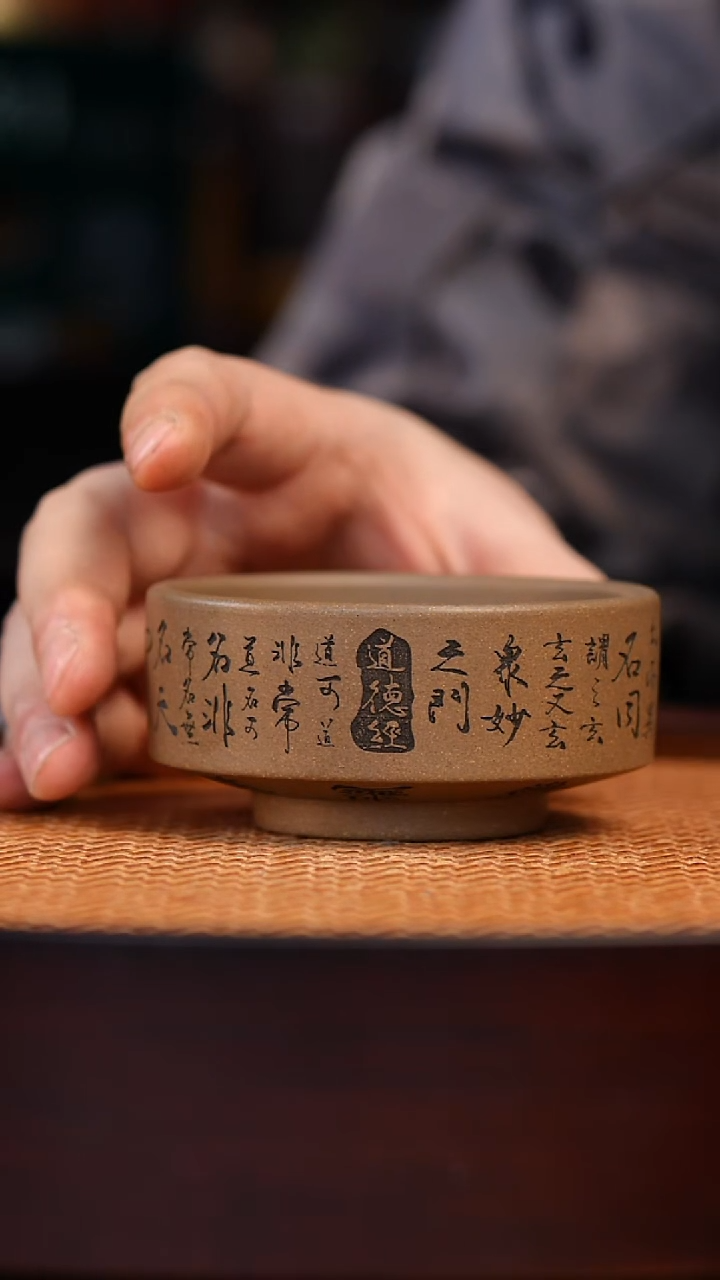 名同
謂之玄
玄之又玄
衆妙
之門
道德經
道可道
非常
道名可
名非
常名無
名天